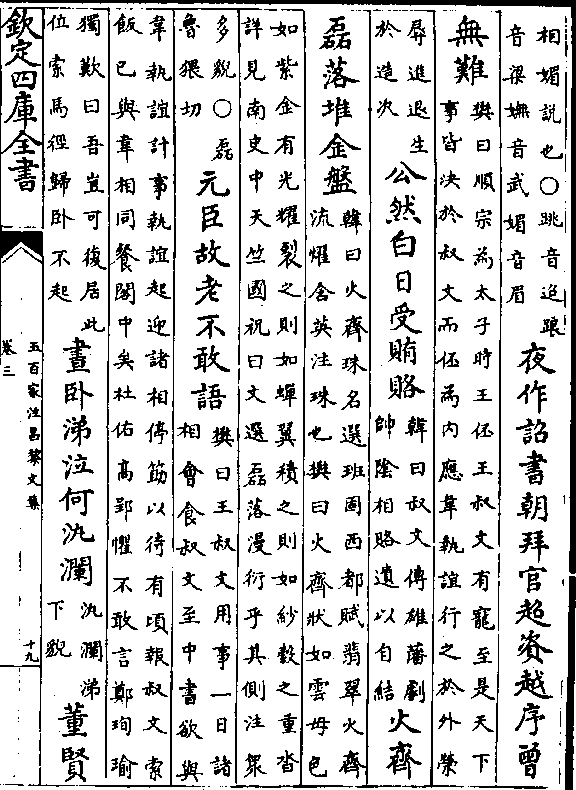 相媚說也○跳音迢踉音梁嫵音武媚音眉夜作詔書朝拜官超資越序曾
無難樊曰順宗為太子時王伾王叔文有寵至是天下事皆決於叔文而伾為内應韋執誼行之於外榮
辱進退生於造次公然白日受賄賂韓曰叔文傳雄藩劇帥陰相賂遺以自結火齊
磊落堆金盤韓曰火齊珠名選班固西都賦翡翠火齊流耀含英注珠也樊曰火齊狀如雲母色
如紫金有光耀裂之則如蟬翼積之則如紗縠之重沓詳見南史中天竺國祝曰文選磊落漫衍乎其側注衆
多貌○磊魯猥切元臣故老不敢語樊曰王叔文用事一日諸相會食叔文至中書欲與
韋執誼計事執誼起迎諸相停筯以待有頃報叔文索飯已與韋相同餐閤中矣杜佑高郢懼不敢言鄭珣瑜
獨歎曰吾豈可復居此位索馬徑歸卧不起晝卧涕泣何汍瀾汍瀾涕下貌董賢
欽定四庫全書
五百家注昌黎文集
卷三
十九